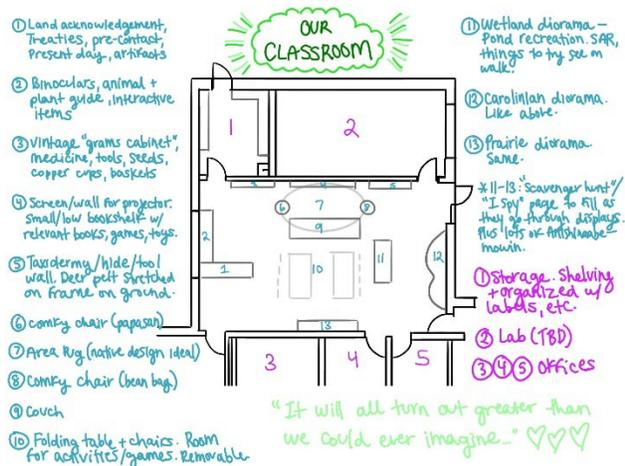 OUR
CLASSROOM
① Land acknowledgement,
Treaties, pre-contact,
Present day, artifacts
② Binoculars, animal +
plant guide, interactive
items
③ Vintage "grams cabinet",
medicine, tools, seeds,
copper cups, baskets
④ Screen/wall for projector.
small/low bookshelf w/
relevant books, games, toys.
⑤ Taxidermy/hide/tool
wall. Deer pelt stretched
on frame on ground.
⑥ comfy chair (papasan)
⑦ Area rug (native design ideal)
⑧ Comfy chair (bean bag)
⑨ Couch
⑩ Folding table + chairs. Room
for activities/games. Removable
1
2
3
4
5
6
7
8
9
2
1
10
11
12
13
3
4
5
⑪ Wetland diorama –
Pond recreation. SAR,
things to try see on
walk.
⑫ Carolinian diorama.
Like above.
⑬ Prairie diorama.
Same.
* 11-13: "Scavenger hunt"/
"I spy" page to fill as
they go through displays.
Plus lots of Anishinabe-
mowin.
① Storage. Shelving
+ organized w/
labels, etc.
② Lab (TBD)
③④⑤ offices
"It will all turn out greater than
we could ever imagine..."